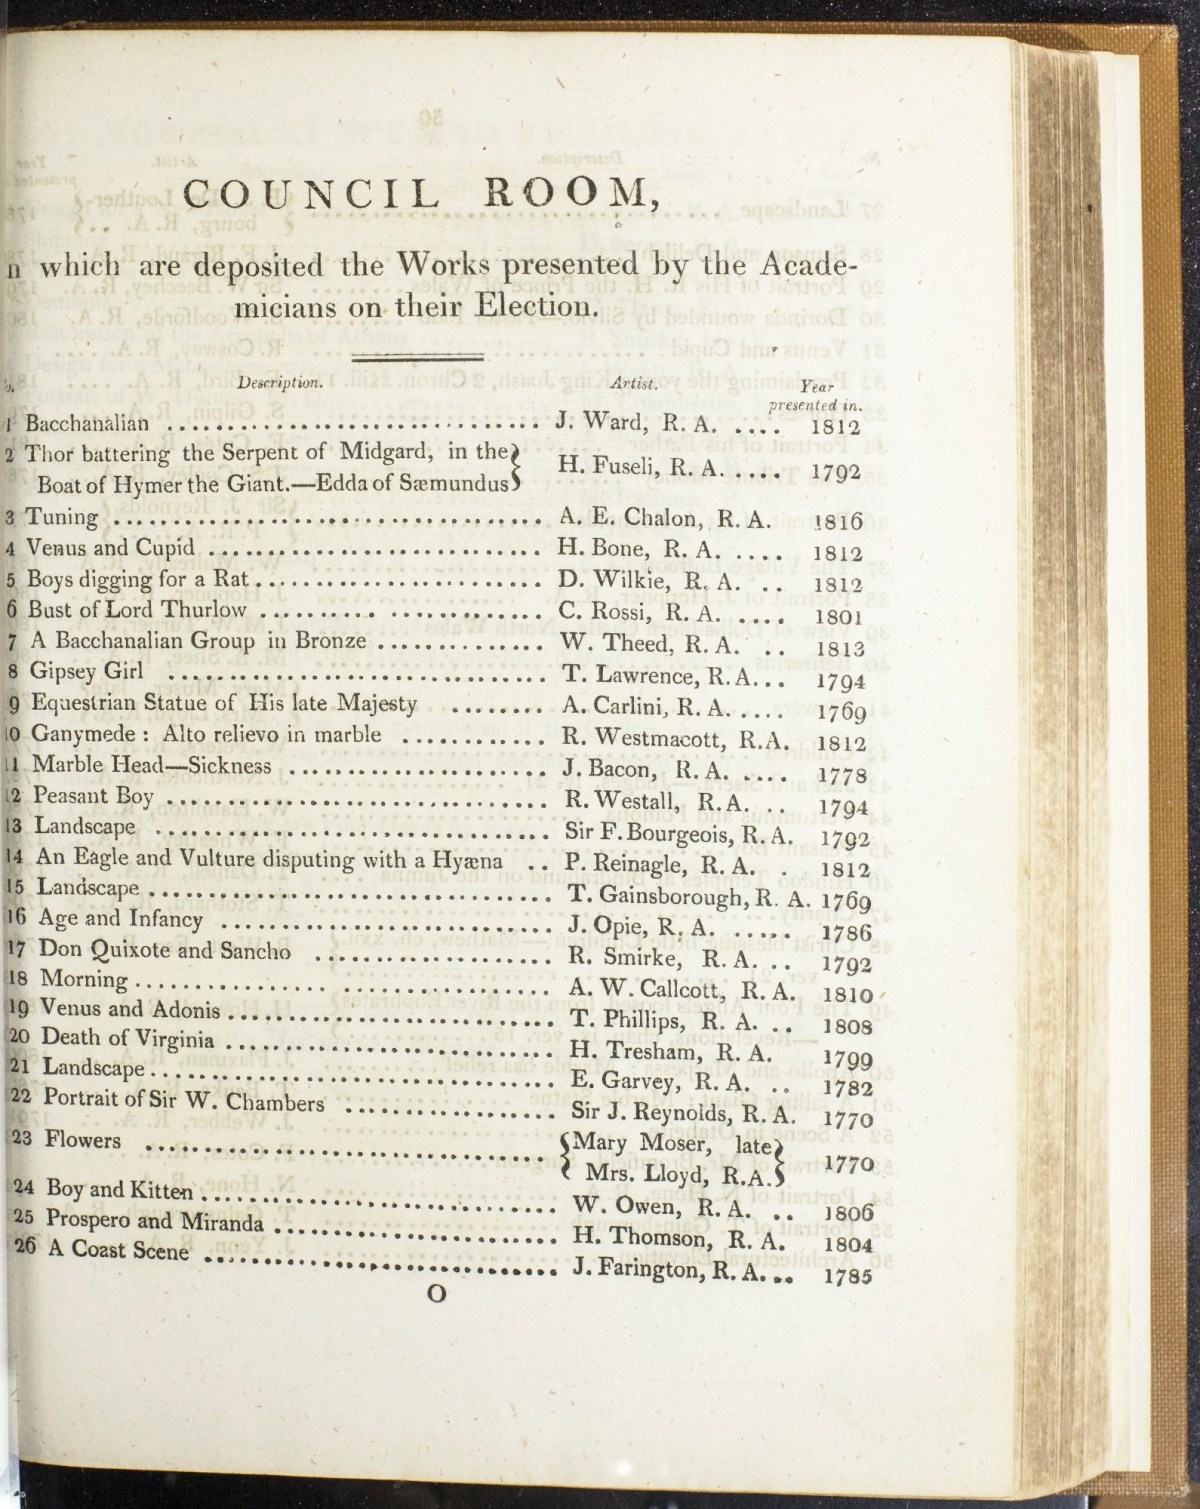 COUNCIL ROOM,
n which are deposited the Works presented by the Acade-
micians on their Election.
Description. Artist. Year
presented in.
1 Bacchanalian .................................. J. Ward, R. A. .... 1812
2 Thor battering the Serpent of Midgard, in the
Boat of Hymer the Giant.—Edda of Sæmundus } H. Fuseli, R. A. ..... 1792
3 Tuning ...................................... A. E. Chalon, R. A. 1816
4 Venus and Cupid .............................. H. Bone, R. A. .... 1812
5 Boys digging for a Rat .......................... D. Wilkie, R. A. .. 1812
6 Bust of Lord Thurlow .......... .............. C. Rossi, R. A. .... 1801
7 A Bacchanalian Group in Bronze ............... W. Theed, R. A. .. 1813
8 Gipsey Girl .................................... T. Lawrence, R. A... 1794
9 Equestrian Statue of His late Majesty ........ A. Carlini, R. A. .... 1769
10 Ganymede : Alto relievo in marble ............ R. Westmacott, R.A. 1812
11 Marble Head—Sickness ....................... J. Bacon, R. A. .... 1778
12 Peasant Boy .................................. R. Westall, R. A. .. 1794
13 Landscape ................................... Sir F. Bourgeois, R. A. 1792
14 An Eagle and Vulture disputing with a Hyæna .. P. Reinagle, R. A. . 1812
15 Landscape .................................... T. Gainsborough, R. A. 1769
16 Age and Infancy .............................. J. Opie, R. A. ..... 1786
17 Don Quixote and Sancho ..................... R. Smirke, R. A. .. 1792
18 Morning ................ .................. A. W. Callcott, R. A. 1810
19 Venus and Adonis ............................. T. Phillips, R. A. .. 1808
20 Death of Virginia ............................. H. Tresham, R. A. 1799
21 Landscape .................................... E. Garvey, R. A. .. 1782
22 Portrait of Sir W. Chambers ................... Sir J. Reynolds, R. A. 1770
23 Flowers ................................... { Mary Moser, late
Mrs. Lloyd, R.A. } 1770
24 Boy and Kitten ............................... W. Owen, R. A. .. 1806
25 Prospero and Miranda ......................... H. Thomson, R. A. 1804
26 A Coast Scene ................................ J. Farington, R. A... 1785
O